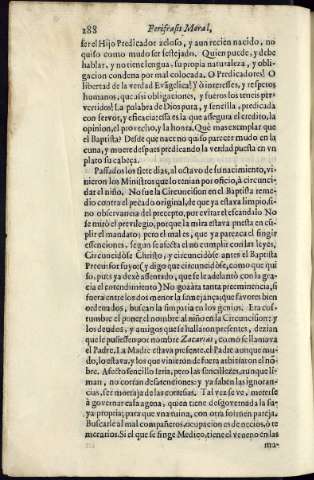 288 Perifrasis Moral,
ser el Hijo Predicador zeloso, y aun recien nacido, no
quiso como mudo ser festejado. Quien puede, y debe
hablar, y no tiene lengua, su propia naturaleza, y obli-
gacion condena por mal colocada. O Predicadores! O
libertad de la verdad Evãgelica! Y ò interesses, y respetos
humanos, que assi obligaciones, y fueros los teneis per-
vertidos! La palabra de Dios pura, y sencilla, predicada
con fervor, y eficacia; essa es la que assegura el credito, la
opinion, el provecho, y la honra. Què mas exemplar que
el Baptista? Desde que nace no quiso parecer mudo en la
cuna, y muere despues predicando la verdad puesta en vn
plato su cabeça.
Passados los siete dias, al octavo de su nacimiento, vi-
nieron los Ministros que lo tenian por oficio, à circunci-
dar el niño. No fue la Circuncision en el Baptista reme-
dio contra el pecado original, de que ya estava limpio, si-
no observancia del precepto, por evitar el escandalo. No
se mirò el previlegio; porque la mira estava puesta en cū-
plir el mandato; pero el mal es, que ya parezca el fingir
essenciones, segun se afecta el no cumplir con las leyes,
Circuncidòse Christo, y circuncidòse antes el Baptista
Precursor suyo: (y digo que circuncidòse, como que qui
so, pues ya dexè assentado, que se le adelantò con la gra-
cia el entendimiento) No gozàra tanta preeminencia, si
fuera entre los dos menor la semejança; que favores bien
ordenados, buscan la simpatia en los genios. Era cos-
tumbre el poner el nombre al niño en la Circuncision: y
los deudos, y amigos que se hallaron presentes, dezian
que le pusiessen por nombre Zacarias, como se llamava
el Padre. La Madre estava presente, el Padre aunque mu-
do, lo estava, y los que vinieron de fuera arbitran el nõ
bre. Afecto sencillo seria, pero las sencillezes, aunque li-
man, no cortan desatenciones: y ya saben las ignoran-
cias, ser mortaja de las cortesias. Tal vez se ve, meterse
à governar casa agena, quien tiene desgovernada la su-
ya propria; para que vna ruina, con otra formen pareja.
Buscarle al mal compañeros, ocupacion es de necios, ò te
merarios. Si el que se finge Medico, tiene el veneno en las
ma-